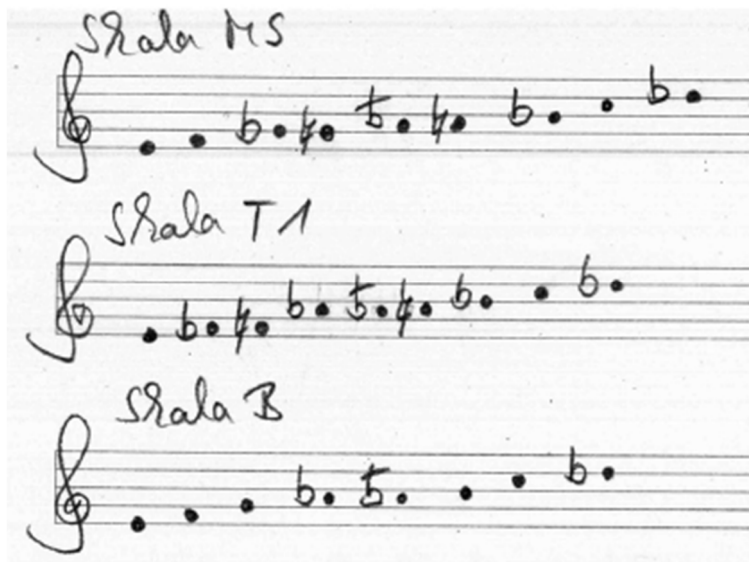 Skala MS
Skala T1
Skala B